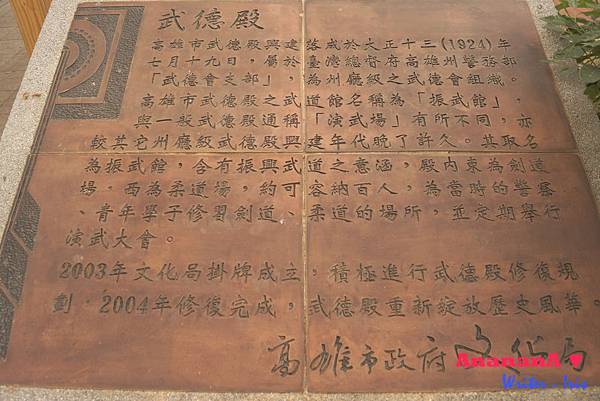 武德殿
高雄市武德殿興建落成於大正十三(1924)年
七月十九日，屬於臺灣總督府高雄州警務部
「武德會支部」，為州廳級之武德會組織。
高雄市武德殿之武道館名稱為「振武館」，
與一般武德殿通稱「演武場」有所不同，亦
較其它州廳級武德殿興建年代晚了許久。其取名
為振武館，含有振興武道之意涵，殿內東為劍道
場，西為柔道場，約可容納百人，為當時的警察
、青年學子修習劍道、柔道的場所，並定期舉行
演武大會。
2003年文化局掛牌成立，積極進行武德殿修復規
劃，2004年修復完成，武德殿重新綻放歷史風華。
高雄市政府文化局
AnanunA
Writer - Iris